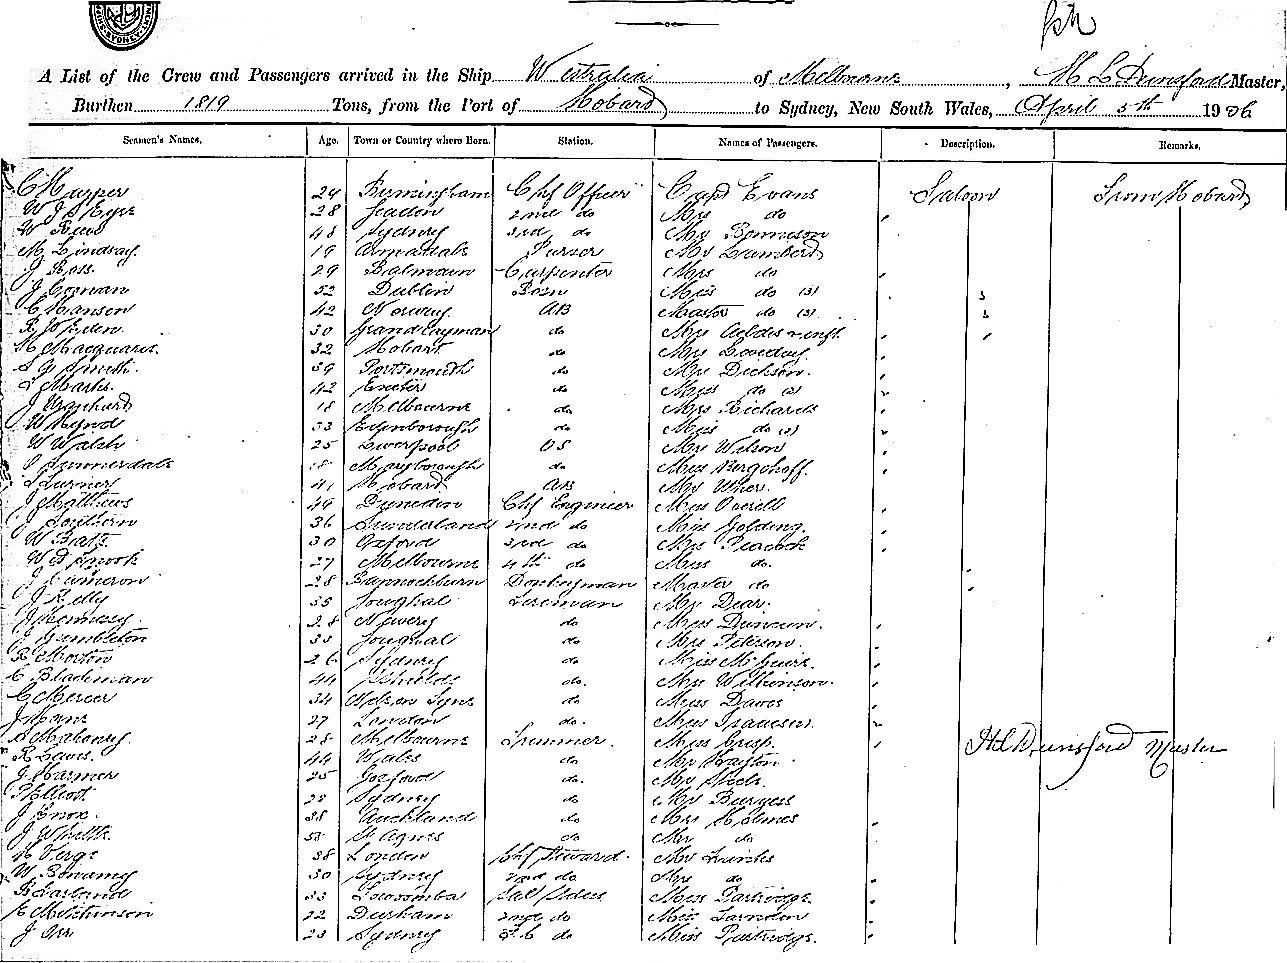 SYDNEY
A List of the Crew and Passengers arrived in the Ship Westralia of Melbourne, H L Dunsford Master,
Burthen 1819 Tons, from the Port of Hobard to Sydney, New South Wales, April 5th 1906
Seamen's Names. Age. Town or Country where Born. Station. Names of Passengers. Description. Remarks.
C Harper 24 Birmingham Chf Officer Capt Evans Saloon From Hobard
W J S Eyre 28 2nd do Mrs do
48 Sydney 3rd do Mr Bonnieson
M Lindsay 19 Armadale Purser Mr Lumberd
J Ross. 29 Balmain Carpenter Mrs do
J Gorman 52 Dublin Bosn Miss do (3) 3
C Hansen 42 Norway AB Master do (3) 3
30 Grand Cayman do Mrs & inft
H Macquarie. 32 Hobart do Mrs Loveday.
Smith. 39 Portsmouth do Mrs Dickson.
Marks. 42 Exeter do Miss do (2)
J Urquhard 18 Melbourne do Mrs Richards
W Hynd 33 Edenborough do Miss do (2)
W Walsh 25 Liverpool OS Mr Watson
Summerdale 18 Maryborough do Miss Berghoff.
Turner 41 Hobard AB Mr
J Matthews 49 Dunedin Chf Engineer Miss Overell
J Southern 36 Sunderland 2nd do Miss Golding.
W Batt. 30 Oxford 3rd do Mrs Peacock
Snook 27 Melbourne 4th do Miss do.
J Cameron 28 Bannockburn Donkeyman Master do
J Kelly 35 Youghal Fireman Mr Dear.
J Hennessy. 28 Newery do Miss Duncan.
J Gumbleton 33 Youghal do Mrs Peterson.
R Morton 26 Sydney do Miss McGuire.
C Blackman 44 do. Mrs Wilkinson.
C Mercer 34 do Miss Davis
27 London do. Miss
Mahoney. 28 Melbourne Trimmer. Miss Crisp. H L Dunsford Master
R Lewis. 44 Wales do Mr
J Harmer 25 do. Mr Steele.
P Elliott. 22 Sydney do Mr Burgess
J Knox. 38 Auckland do Mrs Holmes
J 53 St Agnes do Mr do
H Verge 38 London Chf Steward. Mr
W 30 Sydney 2nd do Mrs do
33 Toowomba Sal Miss Partridge
E Hutchinson 22 Durham 2nd do Miss
J Orr 23 Sydney do Miss Partridge.